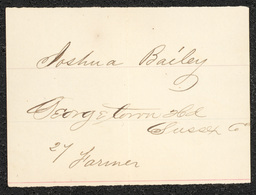 Joshua Bailey
Georgetown Hd
Sussex Co
27 Farmer